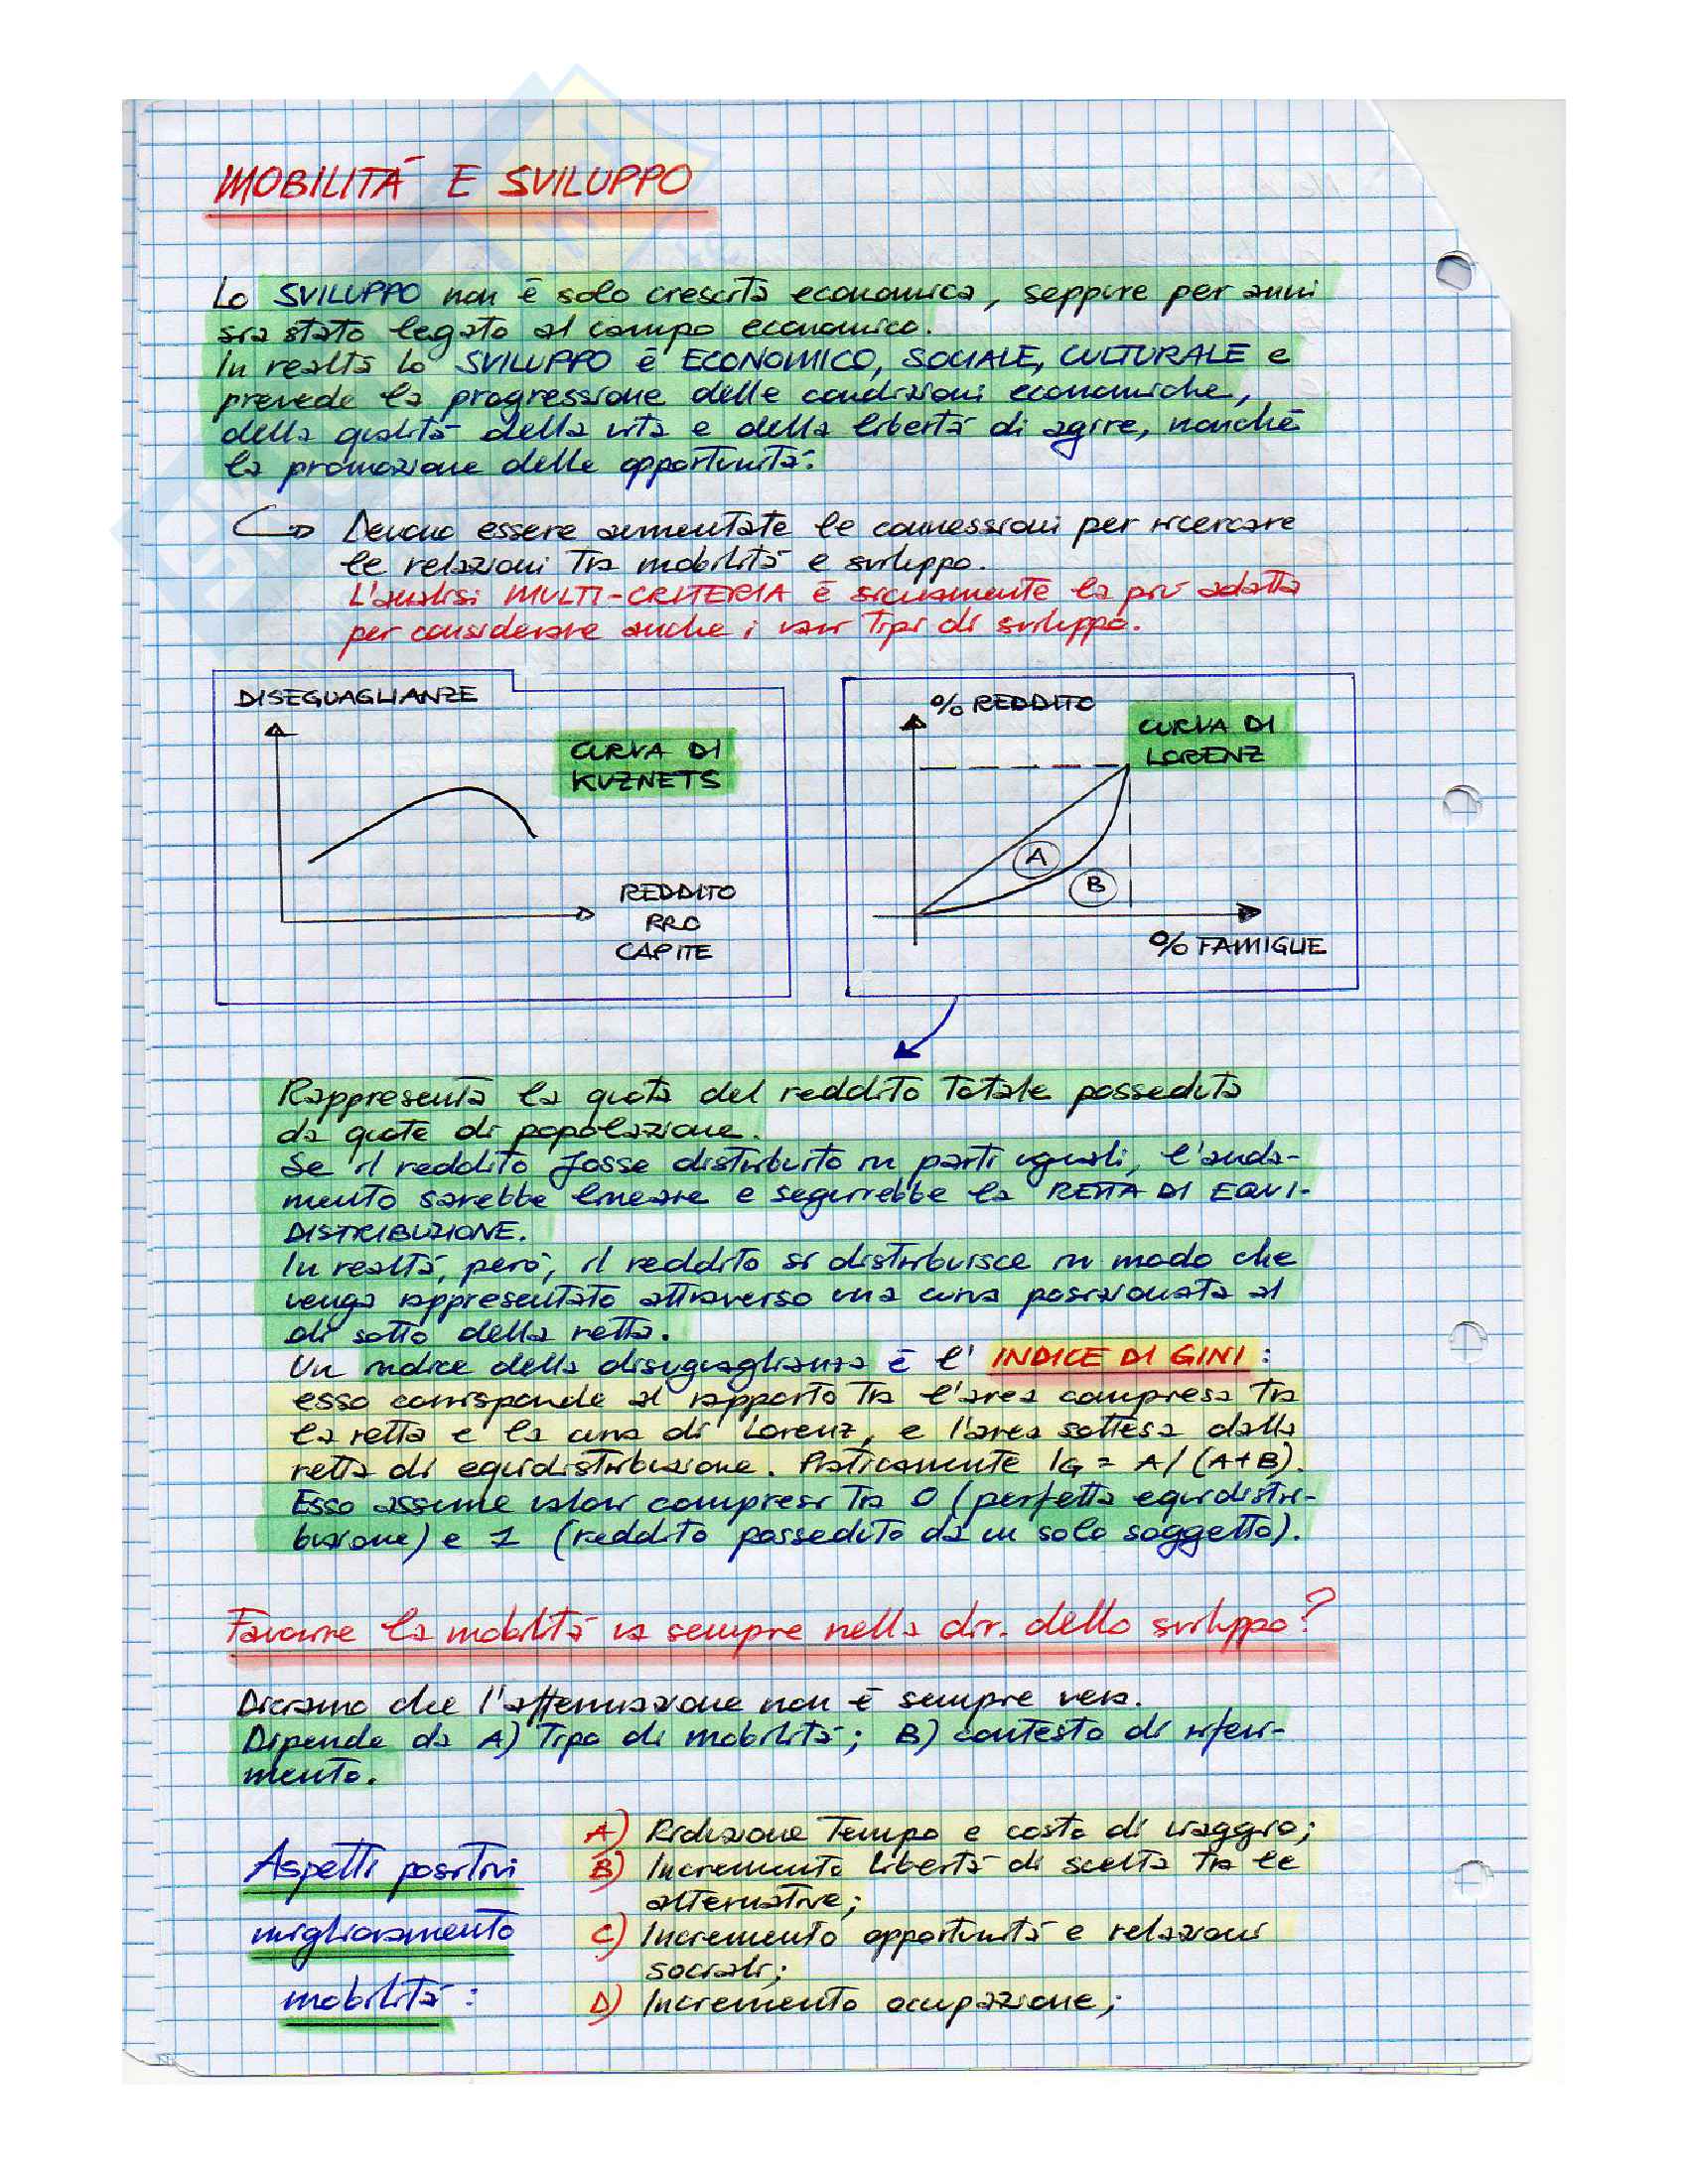 MOBILITÁ E SVILUPPO
Lo SVILUPPO non è solo crescita economica, seppure per anni
sia stato legato al campo economico.
In realtà lo SVILUPPO è ECONOMICO, SOCIALE, CULTURALE e
prevede la progressione delle condizioni economiche,
della qualità della vita e della libertà di agire, nonché
la promozione delle opportunità.
Devono essere aumentate le connessioni per ricercare
le relazioni tra mobilità e sviluppo.
L'analisi MULTI-CRITERIA è sicuramente la più adatta
per considerare anche i vari tipi di sviluppo.
DISEGUAGLIANZE
CURVA DI
KUZNETS
REDDITO
PRO
CAPITE
% REDDITO
CURVA DI
LORENZ
A
B
% FAMIGLIE
Rappresenta la quota del reddito totale posseduta
da quote di popolazione.
Se il reddito fosse distribuito in parti uguali, l'anda-
mento sarebbe lineare e seguirebbe la RETTA DI EQUI-
DISTRIBUZIONE.
In realtà, però, il reddito si distribuisce in modo che
venga rappresentato attraverso una curva posizionata al
di sotto della retta.
Un indice della disuguaglianza è l' INDICE DI GINI :
esso corrisponde al rapporto tra l'area compresa tra
la retta e la curva di Lorenz, e l'area sottesa dalla
retta di equidistribuzione. Praticamente IG = A/(A+B).
Esso assume valori compresi tra 0 (perfetta equidistri-
buzione) e 1 (reddito posseduto da un solo soggetto).
Favorire la mobilità va sempre nella dir. dello sviluppo?
Diciamo che l'affermazione non è sempre vera.
Dipende da A) Tipo di mobilità; B) contesto di riferi-
mento.
Aspetti positivi
miglioramento
mobilità :
A) Riduzione tempo e costo di viaggio;
B) Incremento libertà di scelta tra le
alternative;
C) Incremento opportunità e relazioni
sociali;
D) Incremento occupazione;